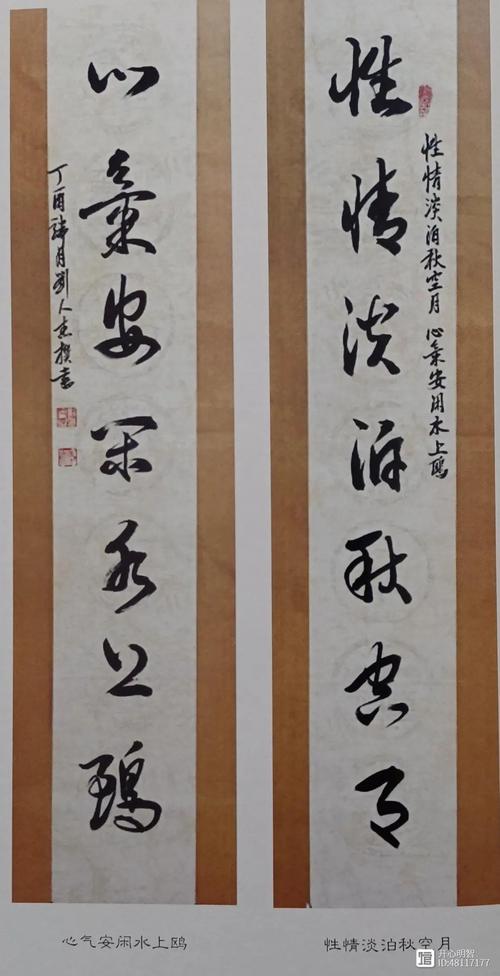 性情淡泊秋空月
性情淡泊秋空月 心气安闲水上鸥
心氣安闲水上鷗
丁酉 月劉人杰撰書
性情淡泊秋空月
心气安闲水上鸥
开心明智
ID:48117177